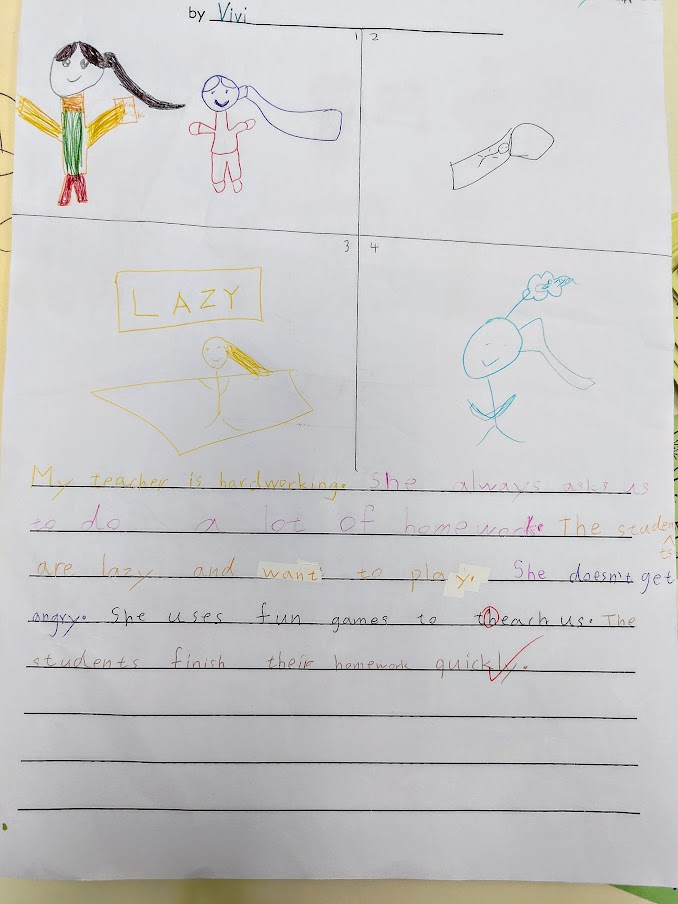 by Vivi
1 2
3 4
LAZY
My teacher is hardworking. She always asks us
to do a lot of homework. The studen
ts
are lazy and want to play. She doesn't get
angry. She uses fun games to theach us. The
students finish their homework quickly.